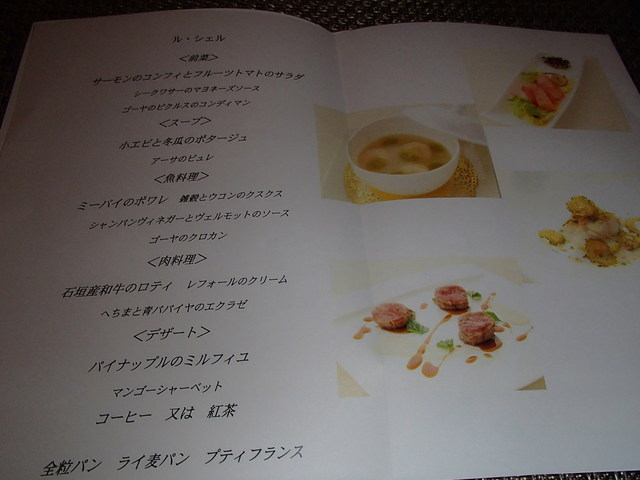 ル・シェル
＜前菜＞
サーモンのコンフィとフルーツトマトのサラダ
シークワサーのマヨネーズソース
ゴーヤのピクルスのコンディマン
＜スープ＞
小エビと冬瓜のポタージュ
アーサのピュレ
＜魚料理＞
ミーバイのポワレ　雑穀とウコンのクスクス
シャンパンヴィネガーとヴェルモットのソース
ゴーヤのクロカン
＜肉料理＞
石垣産和牛のロティ　レフォールのクリーム
へちまと青パパイヤのエクラゼ
＜デザート＞
パイナップルのミルフィユ
マンゴーシャーベット
コーヒー　又は　紅茶
全粒パン　ライ麦パン　プティフランス